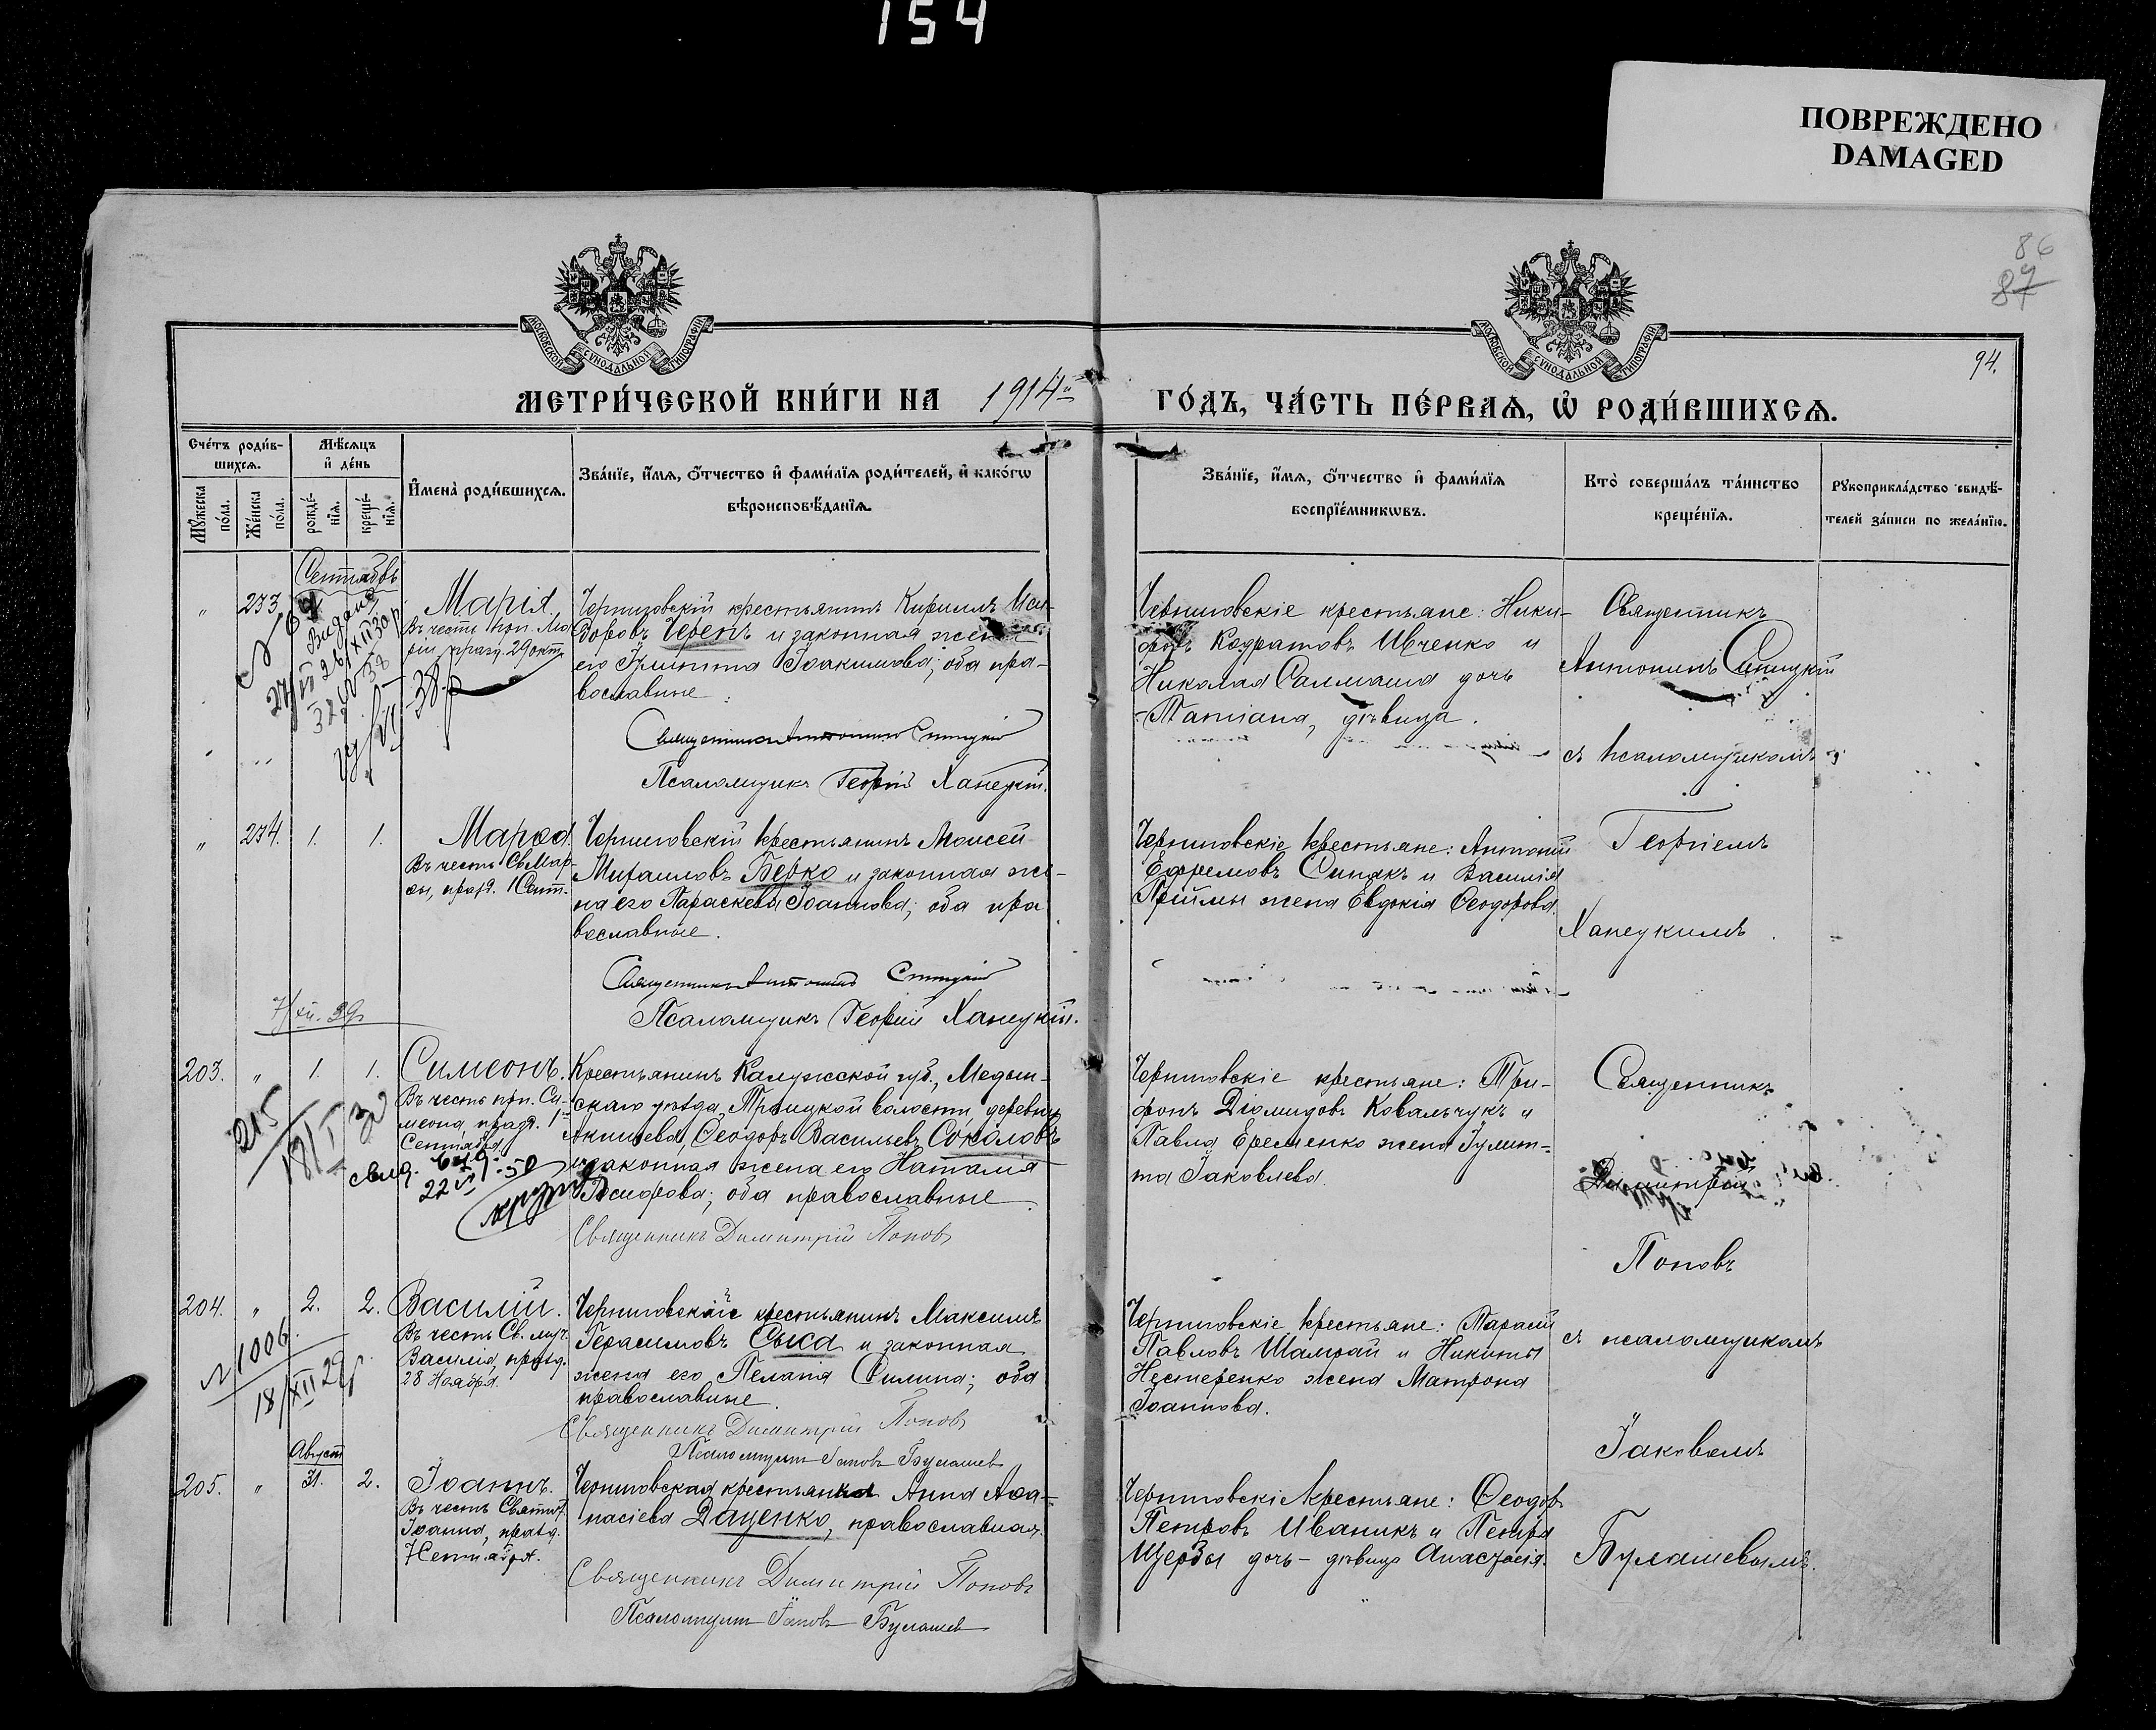 154
ПОВРЕЖДЕНО
DAMAGED
86
87
94.
МОСКОВСКОЙ СѴНОДАЛЬНОЙ ТИПОГРАФІИ
МОСКОВСКОЙ СѴНОДАЛЬНОЙ ТИПОГРАФІИ
МЕТРИ́ЧЕСКОЙ КНИ́ГИ НА 1914й ГО́ДЪ, ЧА́СТЬ ПЕ́РВАѦ, Ѡ РОДИ́ВШИХСѦ.
Сче́тъ роди́в-
шихсѧ.
Мѣ́сѧцъ
и де́нь
Мꙋ́жеска
по́ла.
Же́нска
по́ла.
рожде́-
нїѧ.
креще́-
нїѧ.
Имена̀ роди́вшихсѧ.
Зва́нїе, и́мѧ, о́тчество и фами́лїѧ роди́телей, и како́гѡ
вѣроисповѣ́данїѧ.
Зва́нїе, и́мѧ, о́тчество и фами́лїѧ
воспрїе́мникѡвъ.
Кто̀ соверша́лъ та́инство
креще́нїѧ.
Рꙋкоприкла́дство свидѣ́-
телей за́писи по жела́нїю.
Сентябрь
" 233.
Марія.
Въ честь прп. Ма-
ріи, празд. 29 окт.
Видано
38 р
Черниговскій крестьянинъ Кириллъ Иси-
доровъ Черень и законная жена
его Іулитта Іоакимова; оба пра-
вославные.
Священникъ Антонинъ Синицкій
Псаломщикъ Георгій Ханецкій.
Черниговскіе крестьяне: Ники-
форъ Кодратовъ Ивченко и
Николая Салмаша дочь
Татіана, дѣвица.
Священникъ
Антонинъ Синицкій
съ псаломщикомъ
" 234. 1. 1.
Марѳа.
Въ честь Св. Мар-
ѳы, празд. 1 Сент.
Черниговскій крестьянинъ Моисей
Мираиловъ Берко и законная же-
на его Параскева Іоаннова; оба пра
вославные.
Священникъ Антонинъ Синицкій
Псаломщикъ Георгій Ханецкій.
Черниговскіе крестьяне: Антоній
Ефремовъ Синякъ и Василія
Приймы жена Евдокія Ѳеодорова.
Георгіемъ
Ханецкимъ
7/XII. 39
203. " 1. 1.
Симеонъ.
Въ честь прп. Си-
меона, празд. 1го
Сентября.
215
18/I 30
22 VI - 50
Крестьянинъ Калужской губ., Медын-
скаго уѣзда, Троицкой волости, деревни
Акишева, Ѳеодоръ Васильевъ Соколовъ
и законная жена его Наталія
оба православные
Священникъ Димитрій Поповъ
Черниговскіе крестьяне: Три-
фонъ Діомидовъ Ковальчукъ и
Павла Еременко жена Іулит-
та Іаковлева.
Священникъ
Димитрій
Поповъ
204. " 2. 2.
Василій.
Въ честь Св. муч.
Василія, празд.
28 Ноября.
N 1006.
18/XII 29 г
Черниговскій крестьянинъ Максимъ
Герасимовъ Сыса и законная
жена его Пелагія Силина; оба
православные.
Священникъ Димитрій Поповъ
Псаломщикъ Іаковъ Булашев
Черниговскіе крестьяне: Тарасій
Павловъ Шамрай и Никиты
Нестеренко жена Матрона
Іоаннова.
съ псаломщикомъ
Іаковомъ
Августъ
205. " 31. 2.
Іоаннъ.
Въ честь Святаго
Іоанна, празд.
7 Сентября.
Черниговская крестьянка Анна Аѳа-
насіева Даценко, православная.
Священникъ Димитрій Поповъ
Псаломщикъ Іаковъ Булашев
Черниговскіе крестьяне: Ѳеодоръ
Петровъ Иваникъ и Петра
Щербы дочь - дѣвица Анастасія.
Булашевымъ.